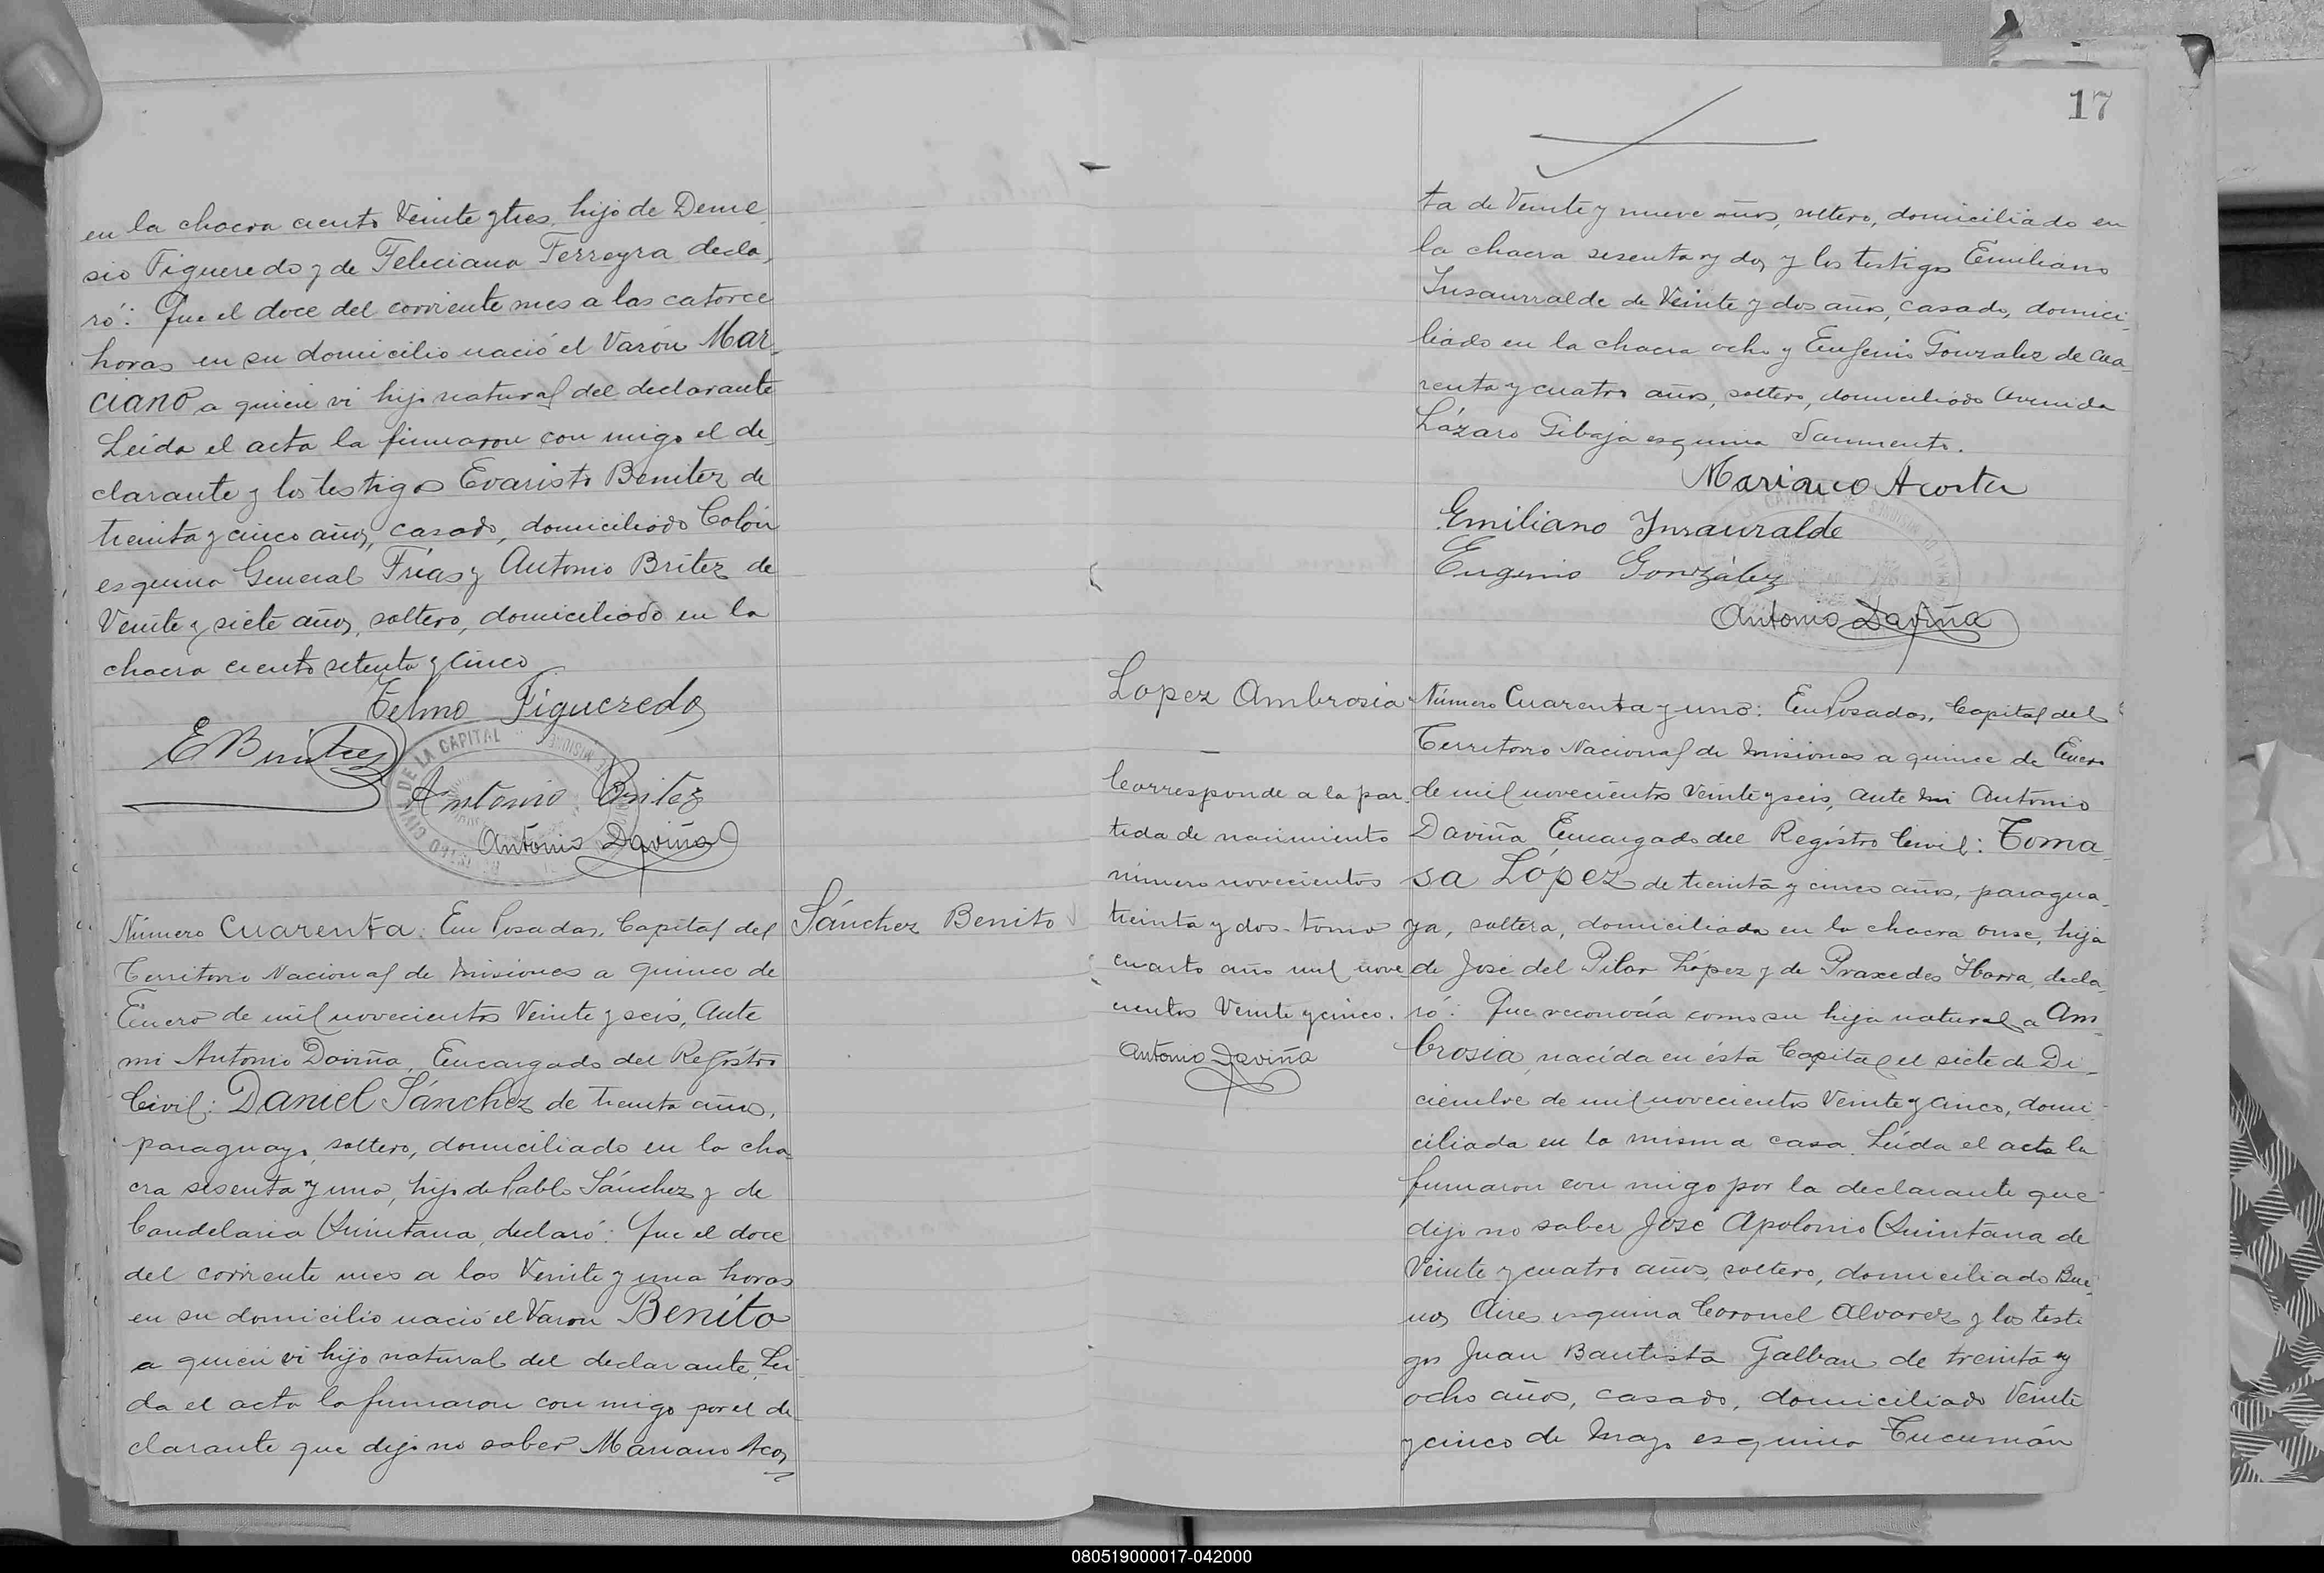 en la chacra ciento Veinte y tres, hijo de Deme-
sio Figueredo y de Feliciana Ferreyra decla-
ró: Que el doce del corriente mes a las catorce
horas en su domicilio nació el Varón Mar-
ciano a quien vi hijo natural del declarante
Leída el acta la firmaron con migo el de-
clarante y los testigos Evaristo Benitez de
treinta y cinco años, casado, domiciliado Colón
esquina General Frías y Antonio Britez de
Veinte y siete años, soltero, domiciliado en la
chacra ciento setenta y cinco
Telmo Figueredo
E Benitez
Antonio Britez
Antonio Daviña
Número Cuarenta: En Posadas, Capital del
Territorio Nacional de Misiones a quince de
Enero de mil novecientos Veinte y seis, Ante
mi Antonio Daviña, Encargado del Regístro
Civil: Daniel Sánchez de treinta años,
paraguayo, soltero, domiciliado en la cha-
cra sesenta y uno, hijo de Pablo Sánchez y de
Candelaria Quintana, declaró: Que el doce
del corriente mes a las Veinte y una horas
en su domicilio nació el Varon Benito
a quien vi hijo natural del declarante, Leí-
da el acta la firmaron con migo por el de-
clarante que dijo no saber Mariano Acos
Sánchez Benito
17
ta de Veinte y nueve años, soltero, domiciliado en
la chacra sesenta y dos y los testigos Emiliano
Insaurralde de Veinte y dos años, casado, domici-
liado en la chacra ocho y Eugenio Gonzalez de cua-
renta y cuatro años, soltero, domiciliado Avenida
Lázaro Gibaja esquina Sarmiento.
Mariano Acosta
Emiliano Insauralde
Eugenio González
Antonio Daviña
Lopez Ambrosia
Corresponde a la par-
tida de nacimiento
número novecientos
treinta y dos - tomo
cuarto año mil nove
cientos Veinte y cinco.
Antonio Daviña
Número Cuarenta y uno: En Posadas, Capital del
Territorio Nacional de Misiones a quince de Enero
de mil novecientos Veinte y seis, ante mi Antonio
Daviña Encargado del Regístro Civil: Toma-
sa López de treinta y cinco años, paragua-
ya, soltera, domiciliada en la chacra onse, hija
de José del Pilar López y de Praxedes Ibarra, decla-
ró: Que reconocía como su hija natural a Am-
brosia, nacída en ésta Capital el siete de Di-
ciembre de mil novecientos Veinte y cinco, domi-
ciliada en la misma casa. Leída el acta la
firmaron con migo por la declarante que
dijo no saber José Apolonio Quintana de
Veinte y cuatro años, soltero, domiciliado Bue-
nos Aires esquina Coronel Alvarez y los testi
gos Juan Bautista Galban de treinta y
ocho años, casado, domiciliado Veinte
y cinco de Mayo esquina Tucumán
080519000017-042000